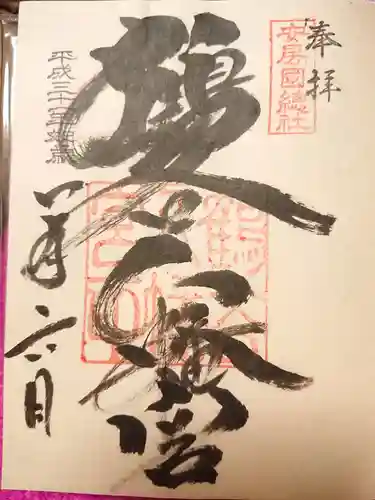 奉拝
安房國總社
鶴谷八幡宮
平成三十年
一月六日